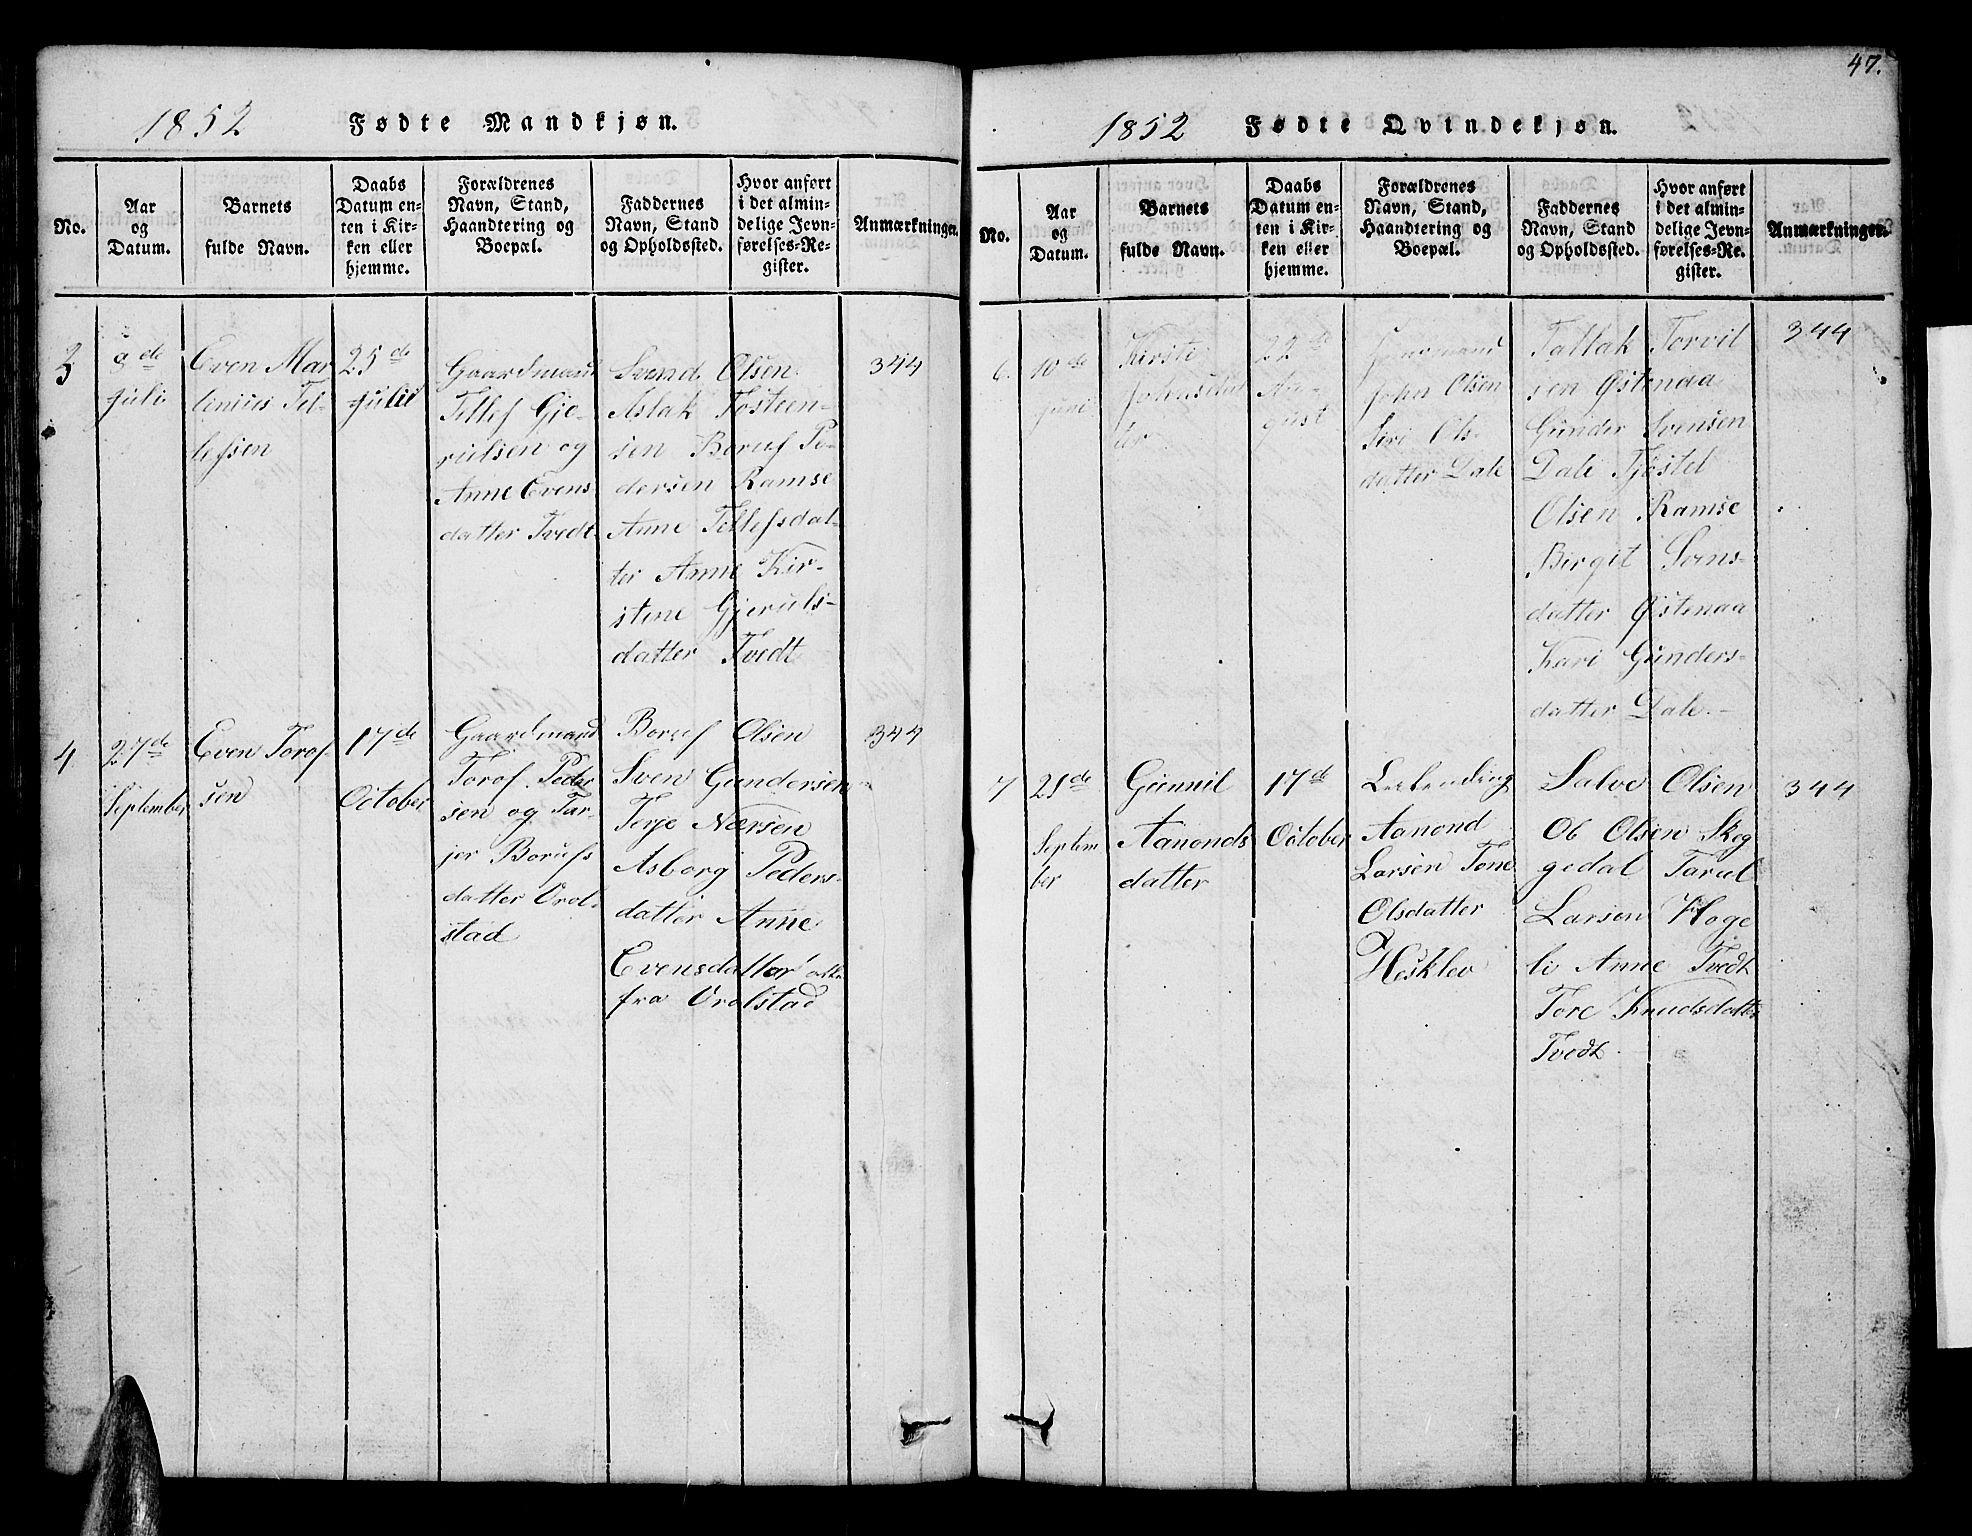 1852 Fødte Mandkjøn.
No.
Aar
og
Datum.
Barnets
fulde Navn.
Daabs
Datum en-
ten i Kir-
ken eller
hjemme.
Forældrenes
Navn, Stand,
Haandtering og
Boepæl.
Faddernes
Navn, Stand
og Opholdssted.
Hvor anført
i det almin-
delige Jevn-
førelses-Re-
gister.
Anmærkninger.
3
9de
Juli
Even Mar
linius Tel-
lefsen
25de
Julii
Gaardmand
Tellef Gje-
rulsen og
Anne Evens
datter Tvedt
Svend Olsen
Aslak Tosteen-
sen Boruf Pe-
dersen Ramse
Anne Tellefsdat-
ter Anne Kir-
stine Gjeruls-
datter Tvedt
344
4
27de
September
Even Torof-
sen
17de
October
Gaardmand
Torof Peder
sen og Tar-
jer Borufs
datter Vrol-
stad
Boruf Olsen
Sven Gundersen
Terje Nærsen
Asborg Peders-
datter Anne
Evensdatter
fra Vrolstad
344
47.
1852 Fødte Qvindekjøn.
No.
Aar
og
Datum.
Barnets
fulde Navn.
Daabs
Datum en-
ten i Kir-
ken eller
hjemme.
Forældrenes
Navn, Stand,
Haandtering og
Boepæl.
Faddernes
Navn, Stand
og Opholdssted.
Hvor anført
i det almin-
delige Jevn-
førelses-Re-
gister.
Anmærkninger.
6.
10de
Juni
Kirsti
Johnsdat
ter
22de
Au-
gust
John Olsen
Siri Ols-
datter Dale
Tallak Torvil
sen Østenaa
Gunder Svensen
Dale Tjøstel
Olsen Ramse
Birgit Svens-
datter Østenaa
Kari Gunders-
datter Dale.
344
7
21de
Septem
ber
Gunnil
Aanonds
datter
17de
October
Leilending
Aanond
Larsen Tone
Olsdatter
Hesklev
Salve Olsen
Ob Olsen Skog
gedal Tarul
Larsen Hoge
li Anne Tvedt
Tore Knudsdatter
Tvedt
344